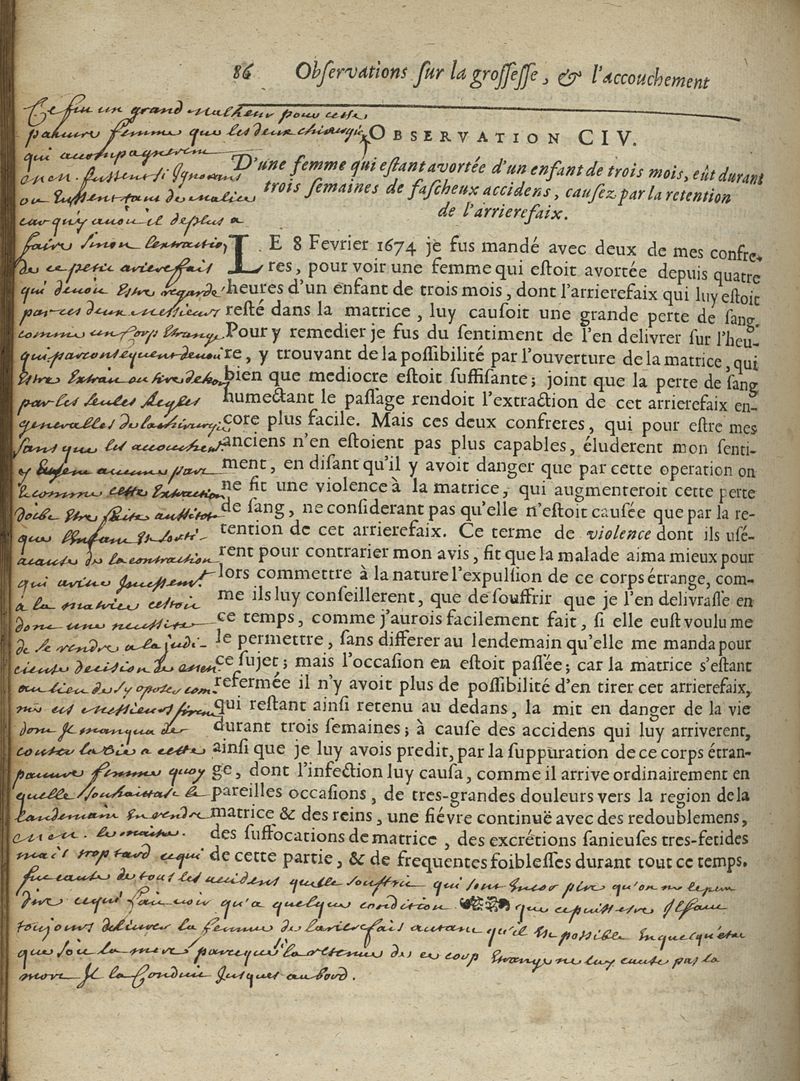 86 Obſervations ſur la groſſeſſe, & l'accouchement
OBSERVATION CIV.
D'une femme qui eſtant avortée d'un enfant de trois mois, eût durant
trois ſemaines de faſcheux accidens, cauſez par la retention
de l'arrierefaix.
LE 8 Fevrier 1674 je fus mandé avec deux de mes confre-
res, pour voir une femme qui eſtoit avortée depuis quatre
heures d'un enfant de trois mois, dont l'arrierefaix qui luy eſtoit
reſté dans la matrice, luy cauſoit une grande perte de ſang.
Pour y remedier je fus du ſentiment de l'en delivrer ſur l'heu-
re, y trouvant de la poſſibilité par l'ouverture de la matrice, qui
bien que mediocre eſtoit ſuffiſante; joint que la perte de ſang
humectant le paſſage rendoit l'extraction de cet arrierefaix en-
core plus facile. Mais ces deux confreres, qui pour eſtre mes
anciens n'en eſtoient pas plus capables, éluderent mon ſenti-
ment, en diſant qu'il y avoit danger que par cette operation on
ne fit une violence à la matrice, qui augmenteroit cette perte
de ſang, ne conſiderant pas qu'elle n'eſtoit cauſée que par la re-
tention de cet arrierefaix. Ce terme de violence dont ils uſé-
rent pour contrarier mon avis, fit que la malade aima mieux pour
lors commettre à la nature l'expulſion de ce corps étrange, com-
me ils luy conſeillerent, que de ſouffrir que je l'en delivraſſe en
ce temps, comme j'aurois facilement fait, ſi elle euſt voulu me
le permettre, ſans differer au lendemain qu'elle me manda pour
ce ſujet; mais l'occaſion en eſtoit paſſée; car la matrice s'eſtant
refermée il n'y avoit plus de poſſibilité d'en tirer cet arrierefaix,
qui reſtant ainſi retenu au dedans, la mit en danger de la vie
durant trois ſemaines; à cauſe des accidens qui luy arriverent,
ainſi que je luy avois predit, par la ſuppuration de ce corps étran-
ge, dont l'infection luy cauſa, comme il arrive ordinairement en
pareilles occaſions, de tres-grandes douleurs vers la region de la
matrice & des reins, une fiévre continuë avec des redoublemens,
des ſuffocations de matrice, des excrétions ſanieuſes tres-fetides
de cette partie, & de frequentes foibleſſes durant tout ce temps.
Ce fut un grand malheur pour cette
pauvre femme que les deux chirurgi
qui accompagnerent
faire sinon l'extraction
de ce petit arierefais
qui devoit estre regardé
par ces deux messieurs
comme un corps etrange
qui par consequent devoit
estre extrait ou tiré dehors
par les seules regles
generalles de la chirurgi
sans que les accoucheurs
y eussent aucune part
que l'enfant est sorti
avant de la contraction
a la matrice estoit
donc une necessité
de se rendre a la judi-
contre la vie a cette
pauvre femme quoy
qu'elle souhaitast le
lendemain
mais trop tard ce qui
fut cause de tous les accidents qu'elle souffrit qui sont encor pire qu'on ne le peut
dire ce qui fait voir qu'a quelque condition que ce puisse estre il faut
toujours delivrer la femme de l'arierefais autant qu'il est possible en quelqu'estat
que soit la mere parceque la retenue de ce corp etrange ne luy cause pas la
mort il la conduit jusques au bord.